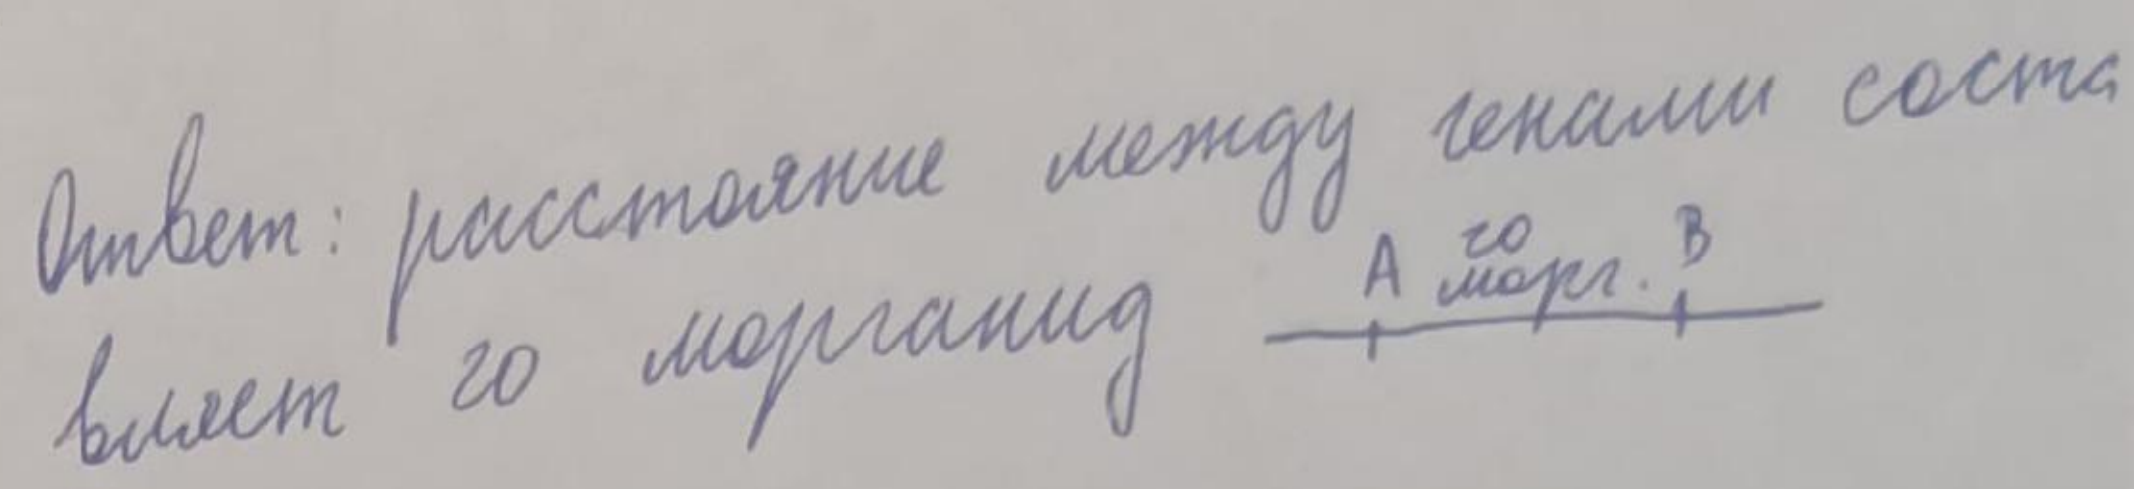 Ответ: расстояние между генами соста
вляет 20 морганид
A 20 B
морг.